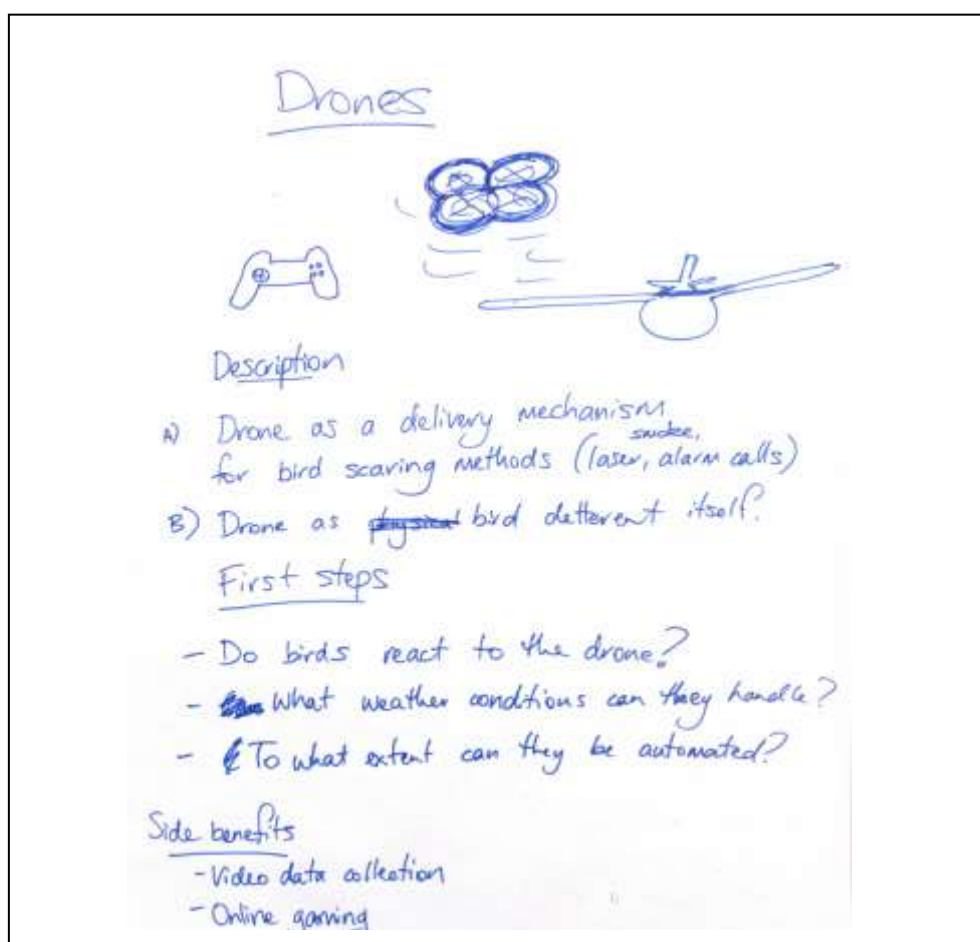 Drones
Description
A) Drone as a delivery mechanism
smoke,
for bird scaring methods (laser, alarm calls)
B) Drone as physical bird detterent itself?
First steps
- Do birds react to the drone?
- What weather conditions can they handle?
- To what extent can they be automated?
Side benefits
- Video data collection
- Online gaming